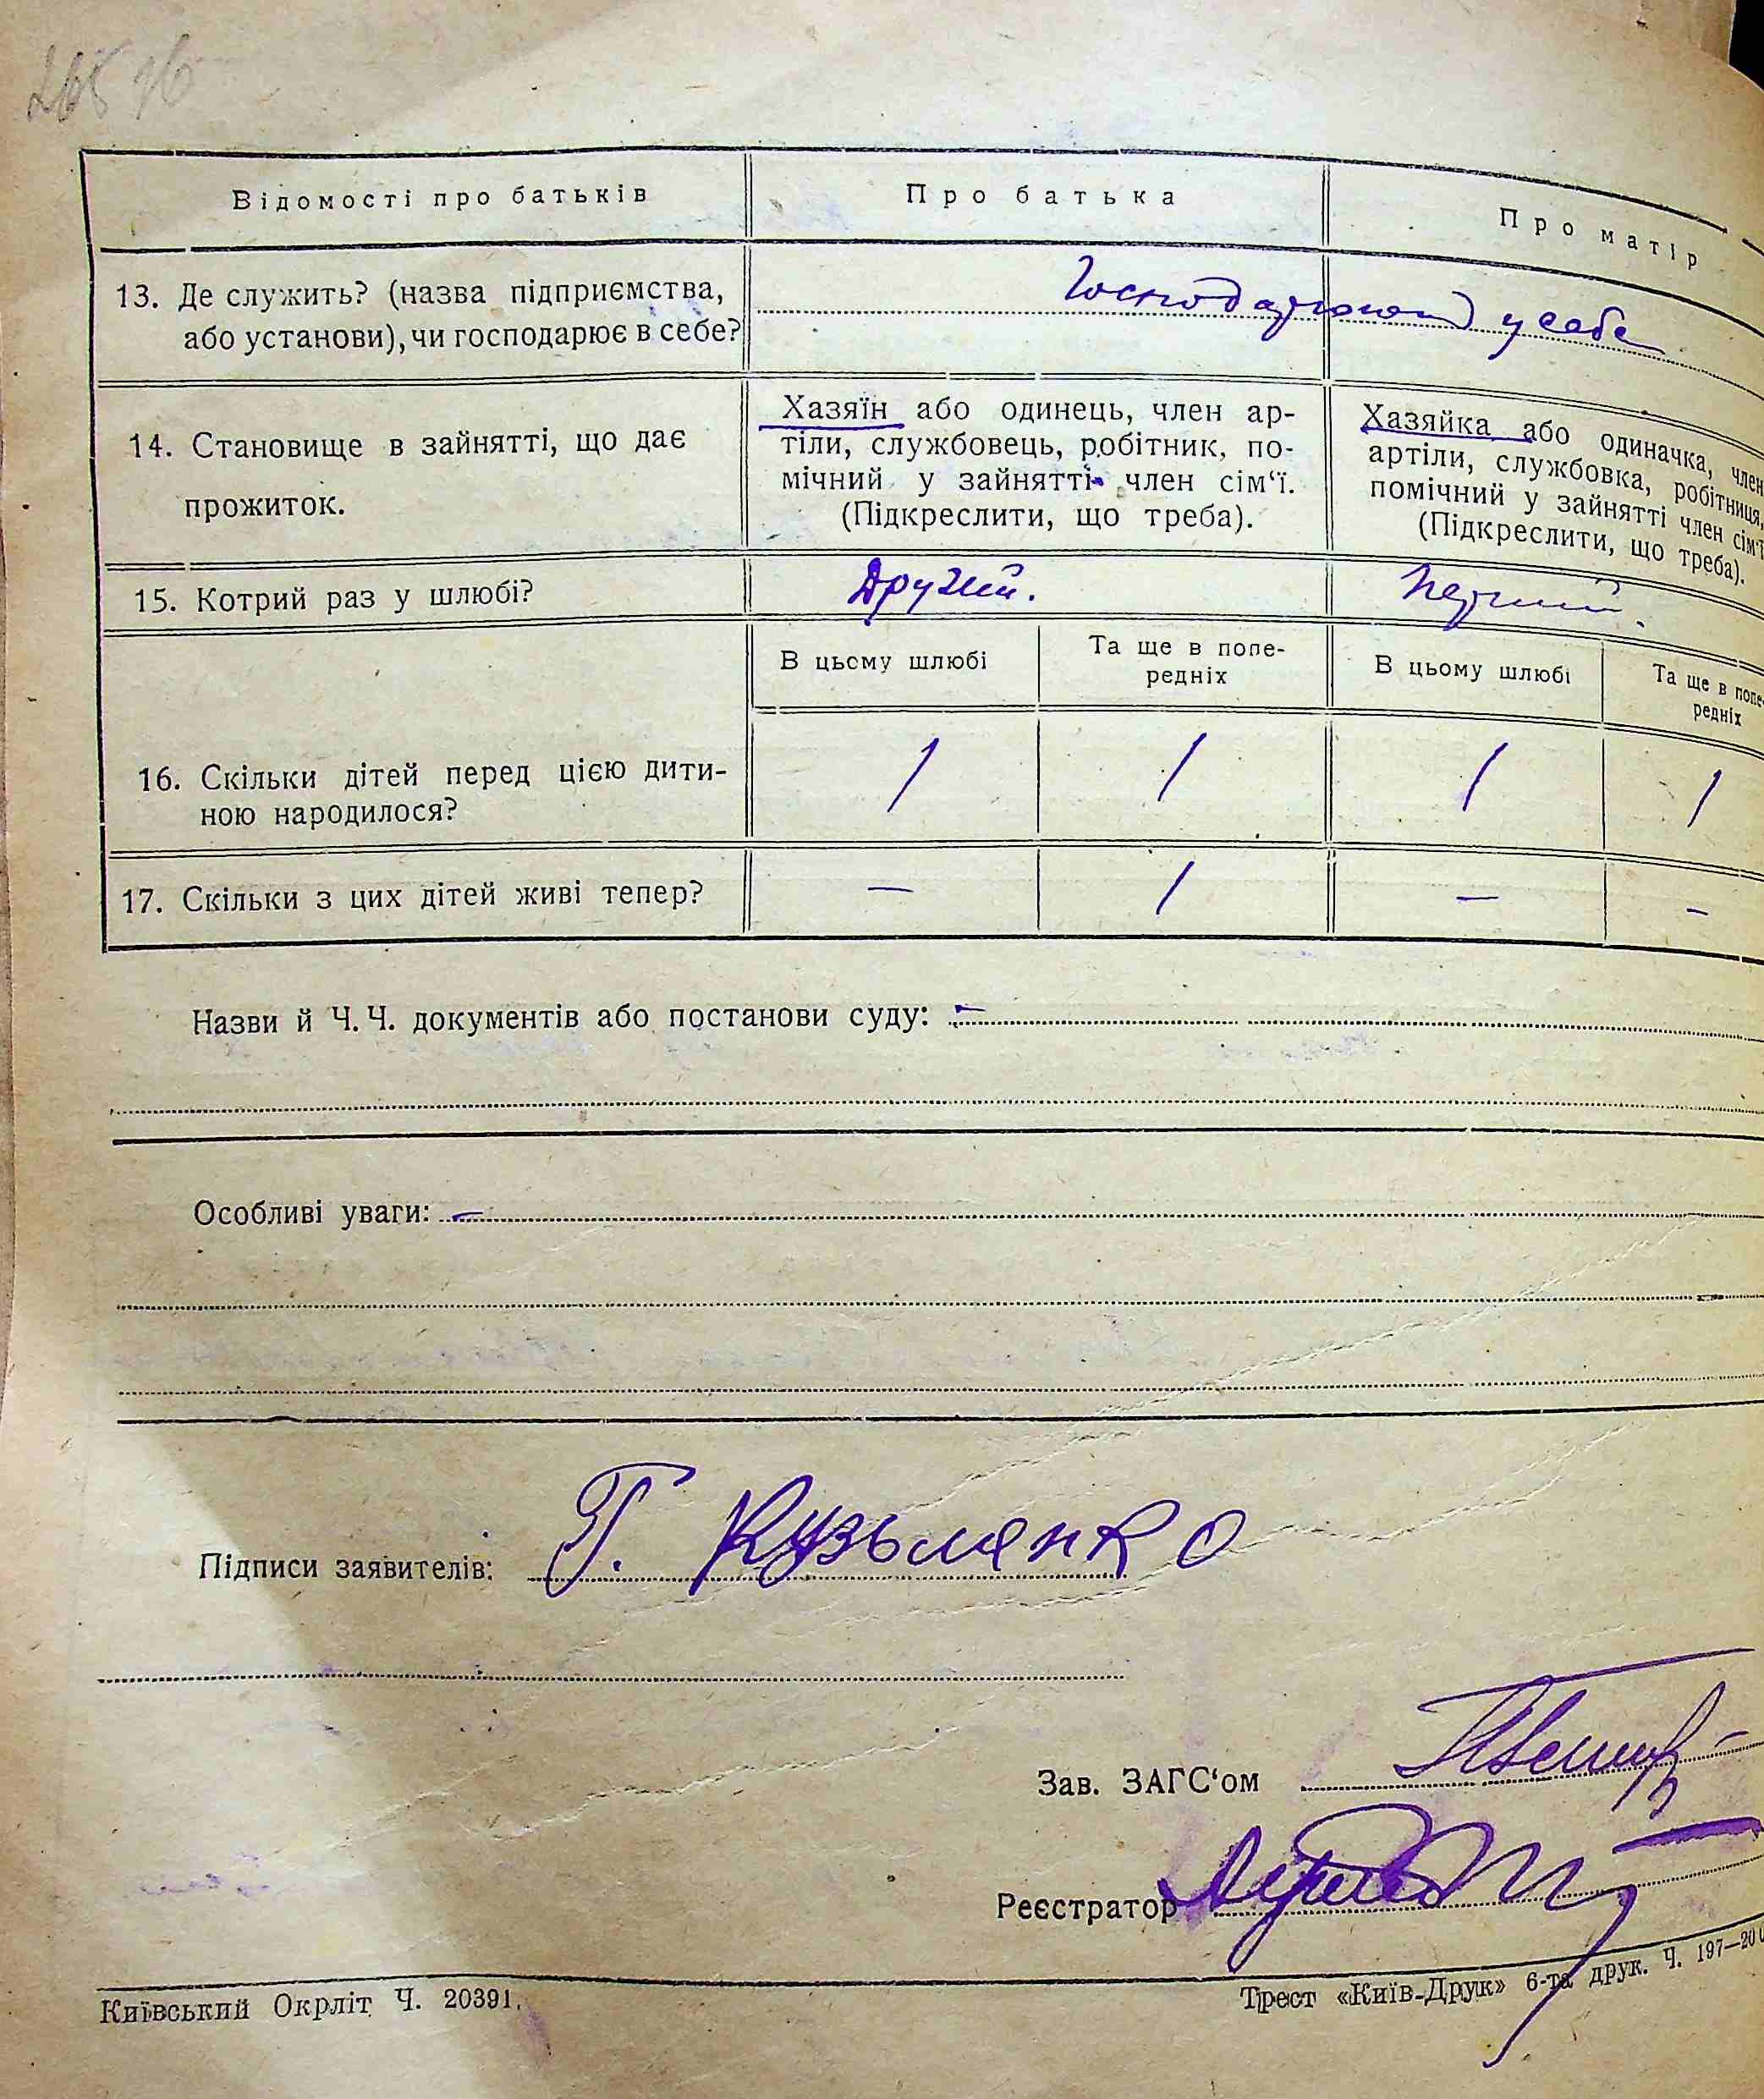 Відомості про батьків
Про батька
Про матір
13. Де служить? (назва підприємства,
або установи), чи господарює в себе?
Господарюют у себе
14. Становище в зайнятті, що дає
прожиток.
Хазяїн або одинець, член ар-
тіли, службовець, робітник, по-
мічний у зайнятті член сім‘ї.
(Підкреслити, що треба).
Хазяйка або одиначка, член
артіли, службовка, робітниця,
помічний у зайнятті член сім‘ї
(Підкреслити, що треба).
15. Котрий раз у шлюбі?
Другий.
Перший.
В цьому шлюбі
Та ще в попе-
редніх
В цьому шлюбі
Та ще в попе-
редніх
16. Скільки дітей перед цією дити-
ною народилося?
1 1 1 1
17. Скільки з цих дітей живі тепер?
— 1 — —
Назви й Ч. Ч. документів або постанови суду: —
Особливі уваги: —
Підписи заявителів: Г. Кузьменко
Зав. ЗАГС‘ом
Реєстратор
Київський Окрліт Ч. 20391.
Трест «Київ-Друк» 6-та друк. Ч. 197—200